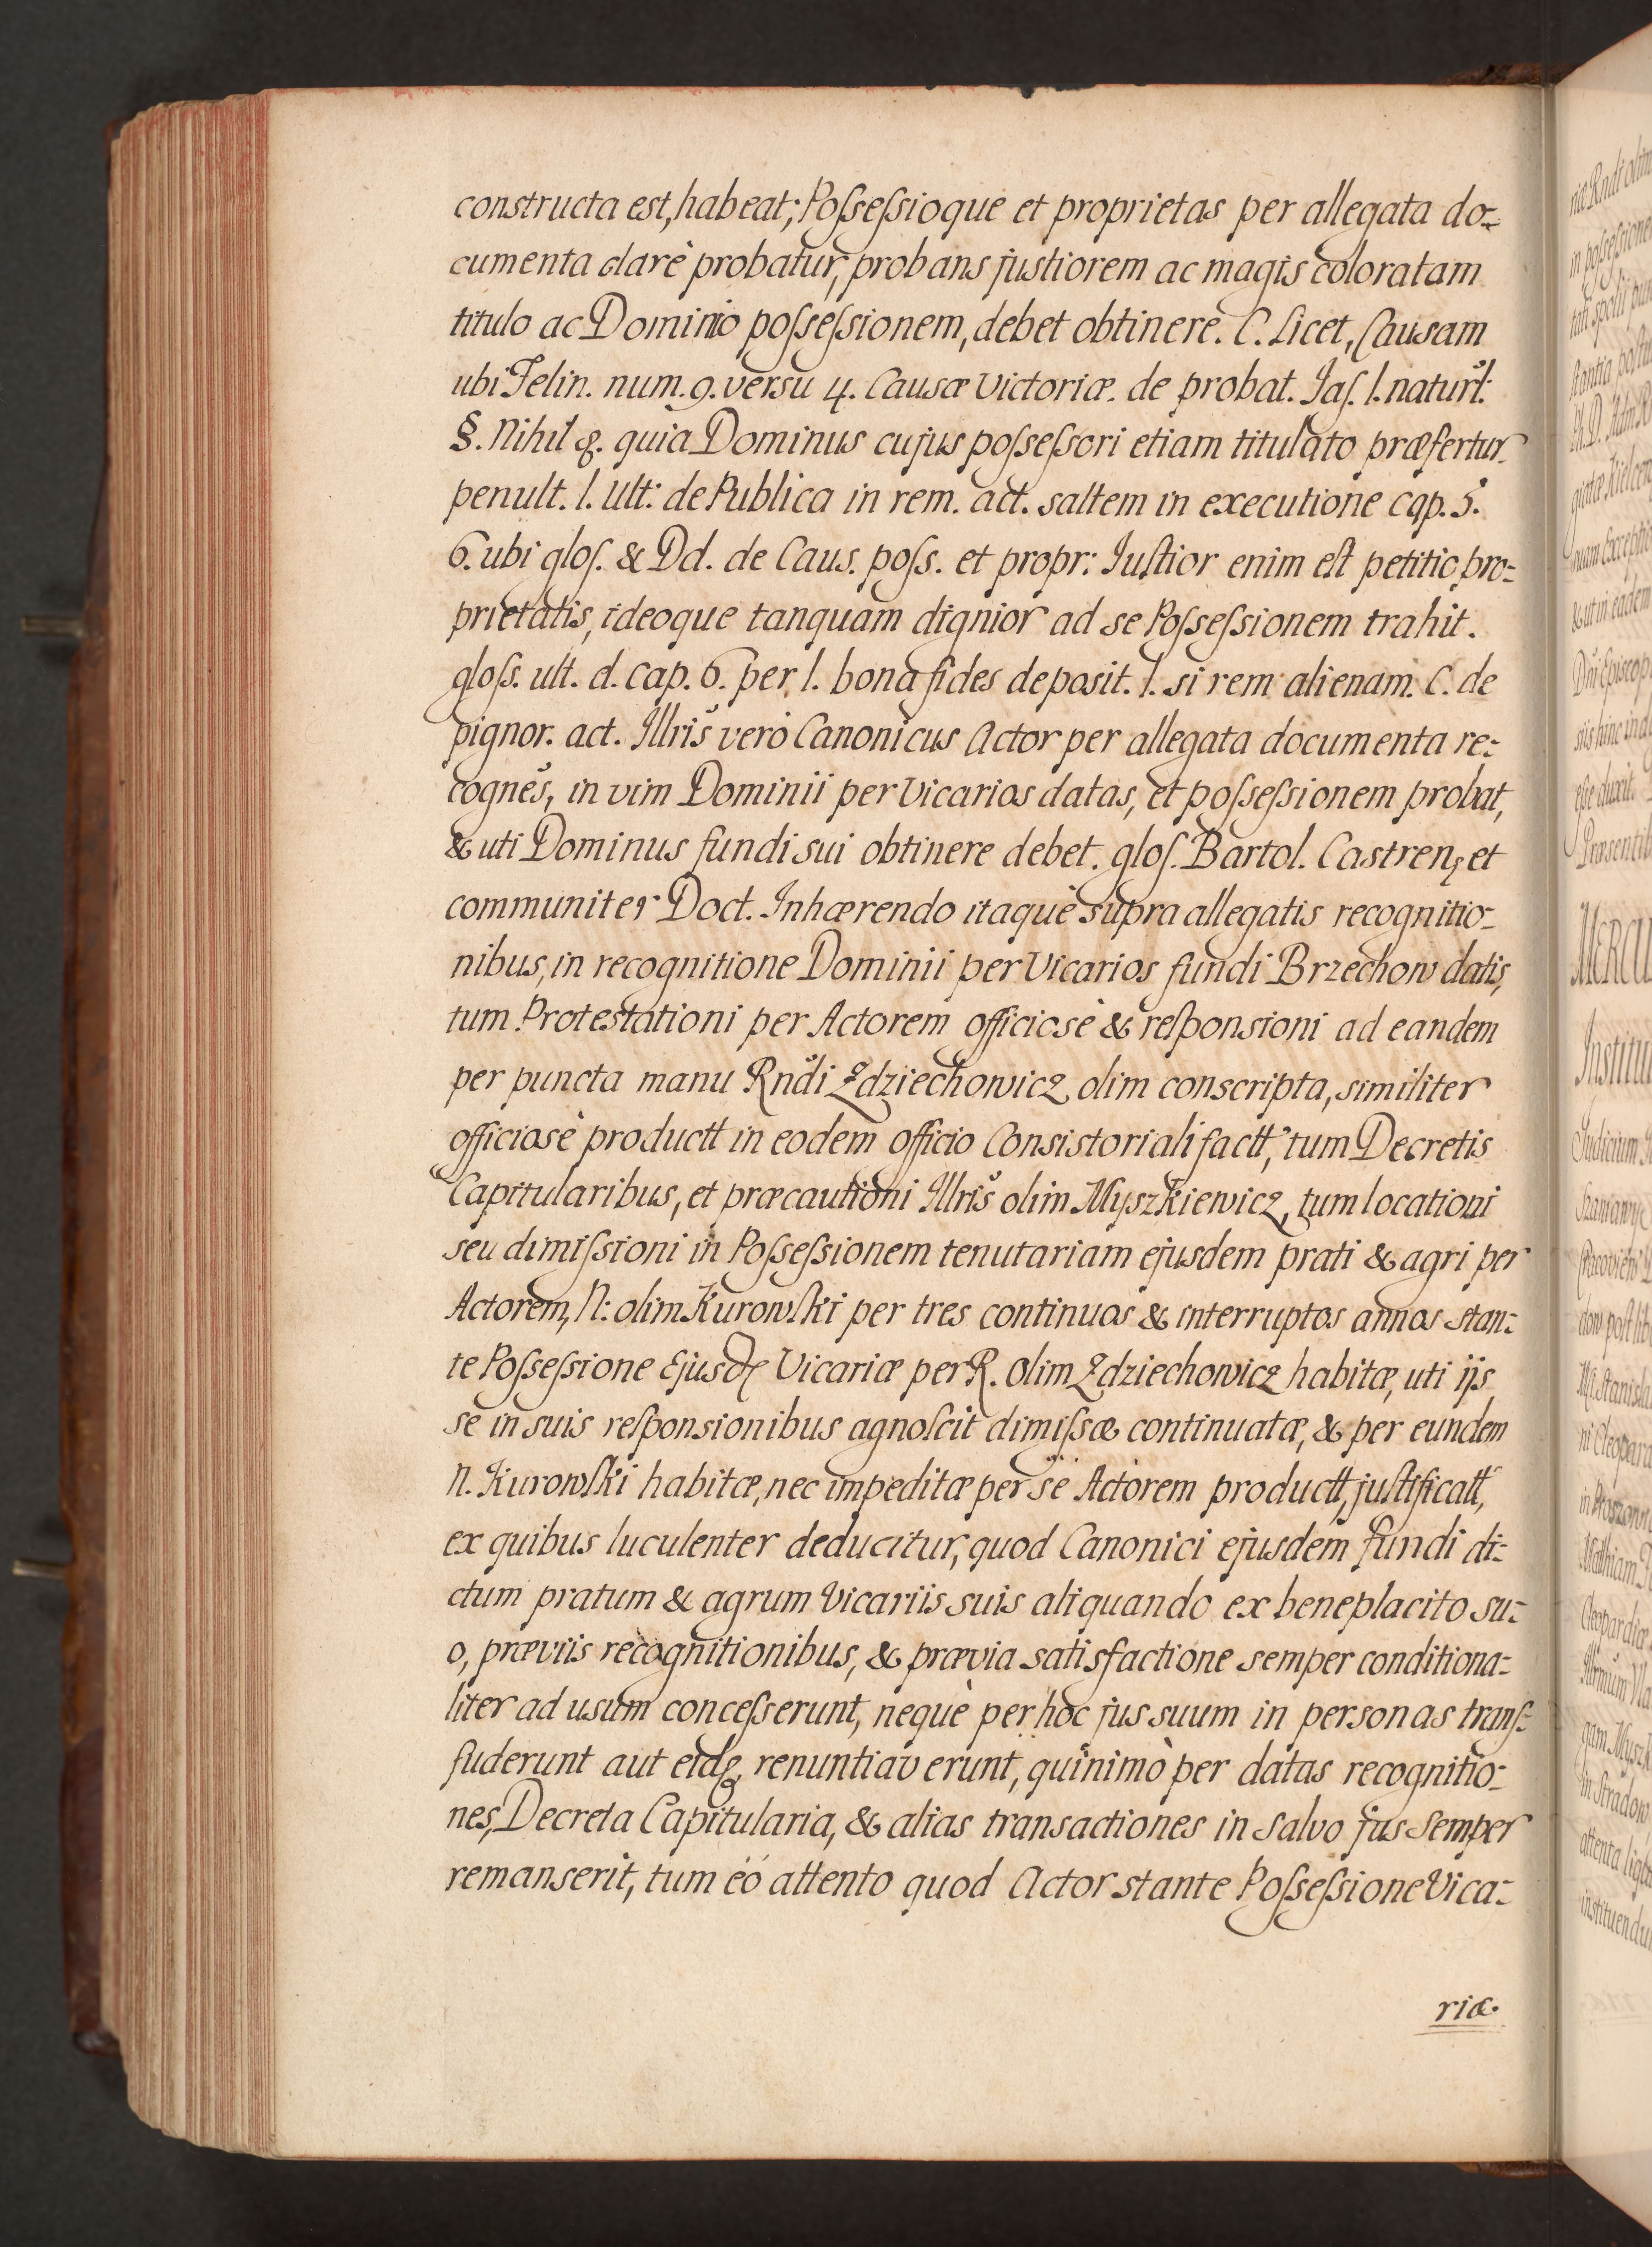 constructa est, habeat; Poſseſsioque et proprietas per allegata do-
cumenta clarè probatur, probans justiorem ac magis coloratam
titulo ac Dominio poſseſsionem, debet obtinere. C. Licet, Causam
ubi Felin. num. 9. versu 4. Causæ Victoriæ. de probat. Jaſ. l. naturl:
§. Nihil q. quia Dominus cujus poſseſsori etiam titulato præfertur
penult. l. Ult: de Publica in rem. act. saltem in executione cap. 5.
6. ubi gloſ. & Dd. de Caus. poſs. et propr: Iuſtior enim eſt petitio pro-
prietatis, ideoque tanquam dignior ad se Poſseſsionem trahit.
gloſs. ult. d. cap. 6. per l. bona fides deposit. l. si rem alienam. C. de
pignor. act. Illris verò Canonicus Actor per allegata documenta re-
cognes, in vim Dominii per Vicarios datas, et poſseſsionem probat,
& uti Dominus fundi sui obtinere debet. gloſ. Bartol. Castren, et
communiter Doct. Inhærendo itaquè supra allegatis recognitio-
nibus, in recognitione Dominii per Vicarios fundi Brzechow datis,
tum Protestationi per Actorem officiosè & reſponsioni ad eandem
per puncta manu Rndi Zdziechowicz olim conscripta, similiter
officiosè productt in eodem officio Consistoriali factt, tum Decretis
Capitularibus, et præcautioni Illris olim Myszkiewicz, tum locationi
seu dimiſsioni in Poſseſsionem tenutariam ejusdem prati & agri per
Actorem, N: olim Kurowſki per tres continuos & interruptos annos stan-
te Poſseſsione Ejusdē Vicariæ per R. olim Zdziechowicz habitæ, uti ijs
se in suis reſponsionibus agnoſcit dimiſsæ continuatæ, & per eundem
N. Kurowſki habitæ, nec impeditæ per se Actorem productt, juſtificatt,
ex quibus luculenter deducitur, quod Canonici ejusdem fundi di-
ctum pratum & agrum Vicariis suis aliquando ex beneplacito su-
o, præviis recognitionibus, & prævia satisfactione semper conditiona-
liter ad usum conceſserunt, nequè per hoc jus suum in personas tranſ-
fuderunt aut eidē renuntiaverunt, quinimò per datas recognitio-
nes, Decreta Capitularia, & alias transactiones in salvo jus semper
remanserit, tum eó attento quod Actor stante Poſseſsione Vica-
riæ.